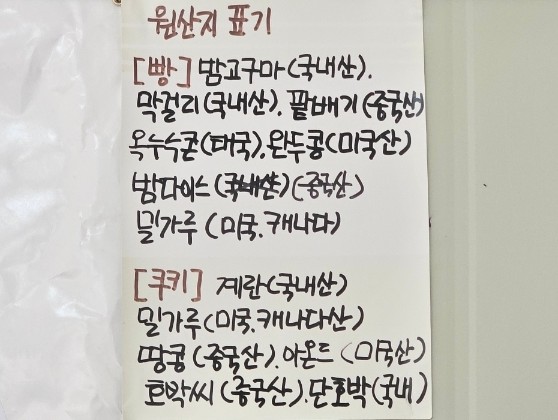 원산지 표기
[빵] 밤고구마(국내산).
막걸리(국내산). 팥배기(중국산)
옥수수콘(태국).완두콩(미국산)
밤다이스 (중국산)
밀가루 (미국.캐나다)
[쿠키] 계란(국내산)
밀가루(미국.캐나다산)
땅콩(중국산).아몬드(미국산)
호박씨(중국산).단호박(국내)